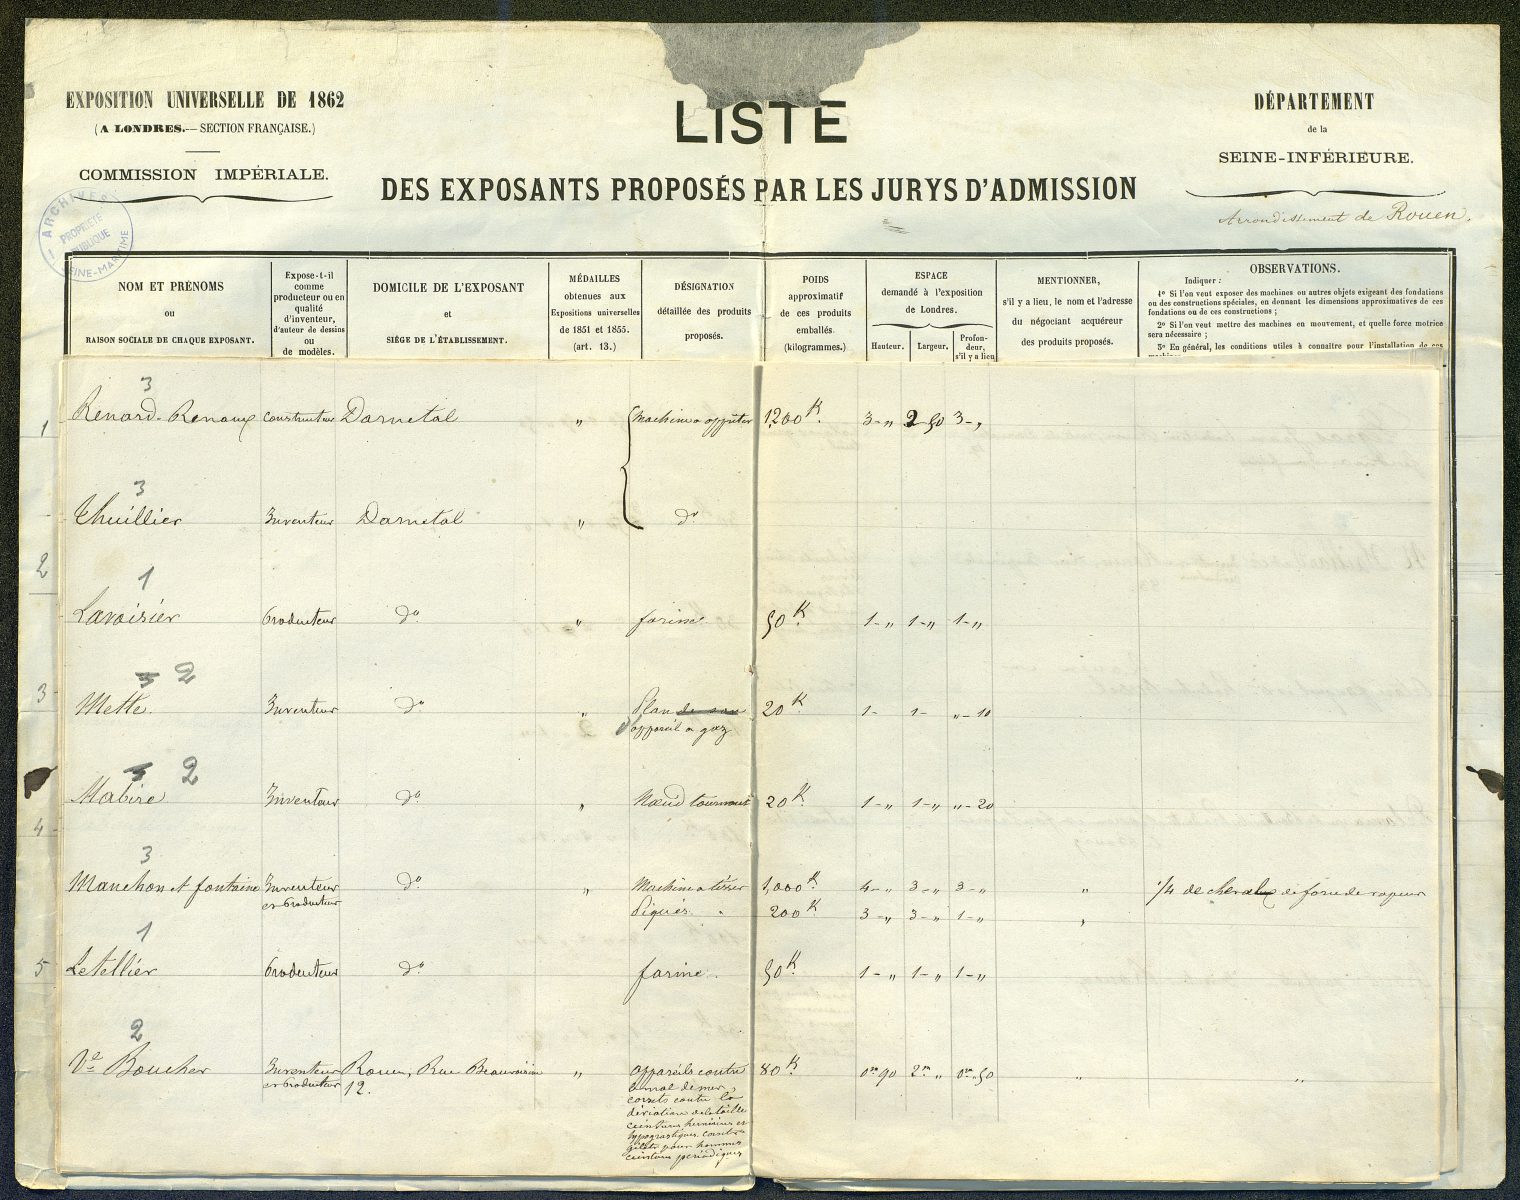 EXPOSITION UNIVERSELLE DE 1862
(A LONDRES.— SECTION FRANÇAISE.)
COMMISSION IMPÉRIALE.
ARCHIVES
PROPRIÉTÉ
PUBLIQUE
SEINE-MARITIME
LISTE
DES EXPOSANTS PROPOSÉS PAR LES JURYS D'ADMISSION
DÉPARTEMENT
de la
SEINE-INFÉRIEURE.
Arrondissement de Rouen.
NOM ET PRÉNOMS
ou
RAISON SOCIALE DE CHAQUE EXPOSANT.
Expose-t-il
comme
producteur ou en
qualité
d'inventeur,
d'auteur de dessins
ou
de modèles.
DOMICILE DE L'EXPOSANT
et
SIÉGE DE L'ÉTABLISSEMENT.
MÉDAILLES
obtenues aux
Expositions universelles
de 1851 et 1855.
(art. 13.)
DÉSIGNATION
détaillée des produits
proposés.
POIDS
approximatif
de ces produits
emballés.
(kilogrammes.)
ESPACE
demandé à l'exposition
de Londres.
Hauteur.
Largeur.
Profon-
deur,
s'il y a lieu
MENTIONNER,
s'il y a lieu, le nom et l'adresse
du négociant acquéreur
des produits proposés.
OBSERVATIONS.
Indiquer :
1° Si l'on veut exposer des machines ou autres objets exigeant des fondations
ou des constructions spéciales, en donnant les dimensions approximatives de ces
fondations ou de ces constructions ;
2° Si l'on veut mettre des machines en mouvement, et quelle force motrice
sera nécessaire ;
3° En général, les conditions utiles à connaître pour l'installation de ces
3
1 Renard-Renaux Constructeur Darnetal „ Machine a appréter 1,200 K. 3 - „ 2 - 50 3 - „
3
Thuillier Inventeur Darnetal „ d°
2
1
Lavoisier Producteur d° „ farine 50 K. 1 - „ 1 - „ 1 - „
3 2
3 Mette. Inventeur d° „ Plan 20 K 1 - 1 - „ - 10
d'appareil a gaz
3 2
Mabire Inventeur d° „ Nœud tournant 20 K. 1 - „ 1 - „ „ - 20
4
3
Manchon et fontaine Inventeur d° „ Machine a tisser 1,000 K 4 - „ 3 - „ 3 - „ „ 1/4 de cheval de force de vapeur
et Producteur Piqués. 200 K 3 - „ 3 - „ 1 - „ „
1
5 Letellier Producteur d° farine. 50 K. 1 - „ 1 - „ 1 - „
2
Ve Boucher Inventeur Rouen, Rue Beauvoisine „ appareils contre 80 K. 0m 90 2m „ 0m „ 50 „ „
et Producteur 12. le mal de mer,
corsets contre la
déviation de la taille
ceintures herniaires et
hypogastriques corsets
gilets pour hommes
ceintures périodiques